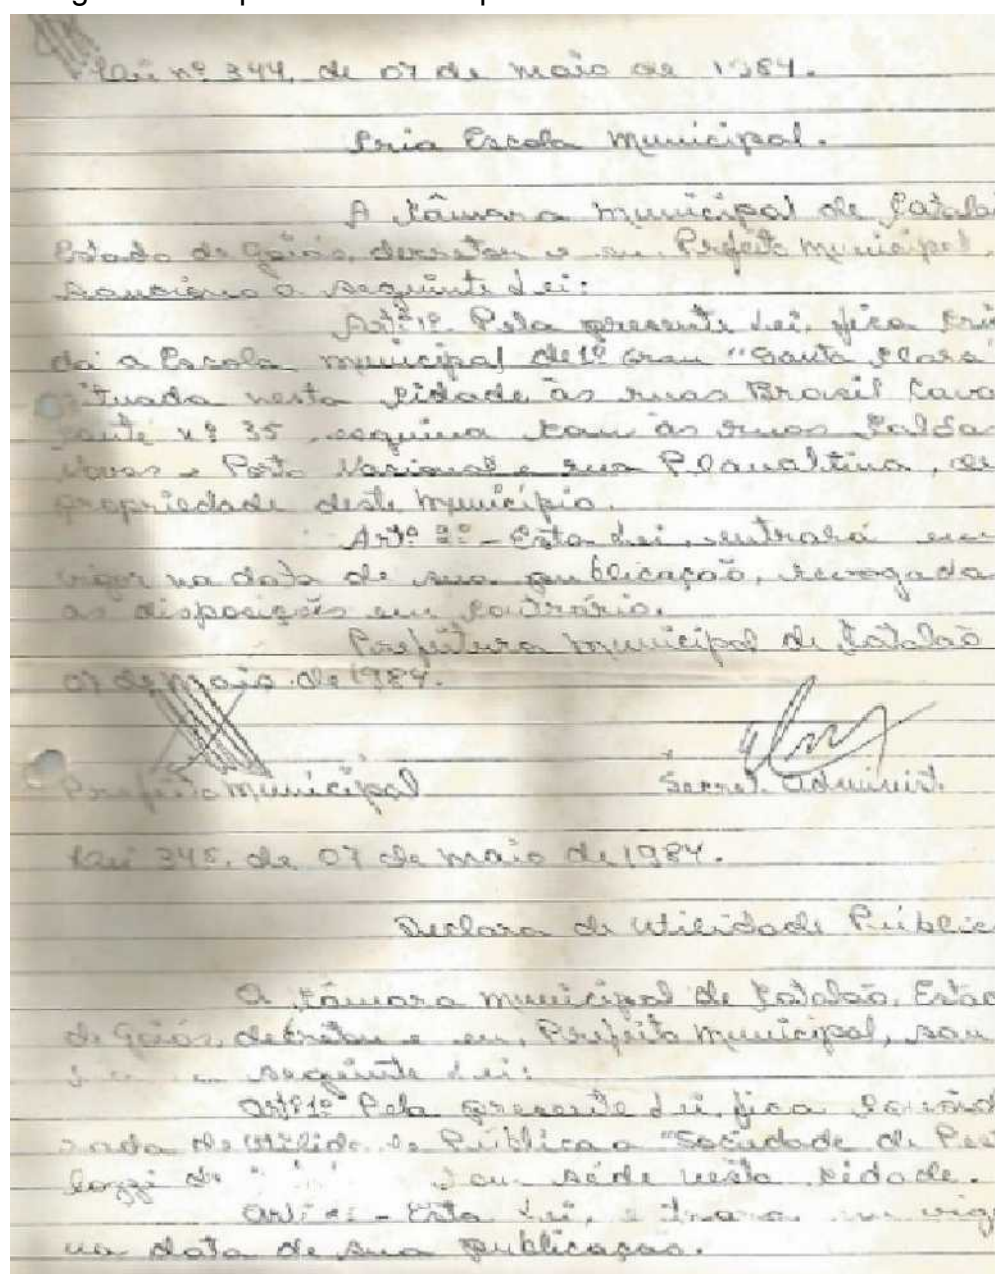 Lei nº 344, de 07 de maio de 1984.
Cria Escola Municipal.
A Câmara Municipal de Catalão
Estado de Goiás, decretou e eu, Prefeito Municipal,
sanciono a seguinte Lei:
Artº 1º. Pela presente Lei, fica cria
da a Escola Municipal de 1º Grau "Santa Clara"
situada nesta cidade às ruas Brasil Caval
cante nº 35, esquina com às ruas Caldas
Novas e Porto Nacional e rua Planaltina, de
propriedade deste Município.
Artº 2º - Esta Lei, entrará em
vigor na data de sua publicação, revogada
as disposições em contrário.
Prefeitura Municipal de Catalão
07 de Maio de 1984.
Prefeito Municipal
Secret. Administ.
Lei 345, de 07 de maio de 1984.
Declara de Utilidade Públic
A Câmara Municipal de Catalão, Estad
de Goiás, decretou e eu, Prefeito Municipal, san
seguinte Lei:
Artº 1º Pela presente Lei, fica
de Utilidade Pública a "Sociedade de Pest
lozzi de com séde nesta cidade.
Art. - Esta Lei, em vig
na data de sua publicação.